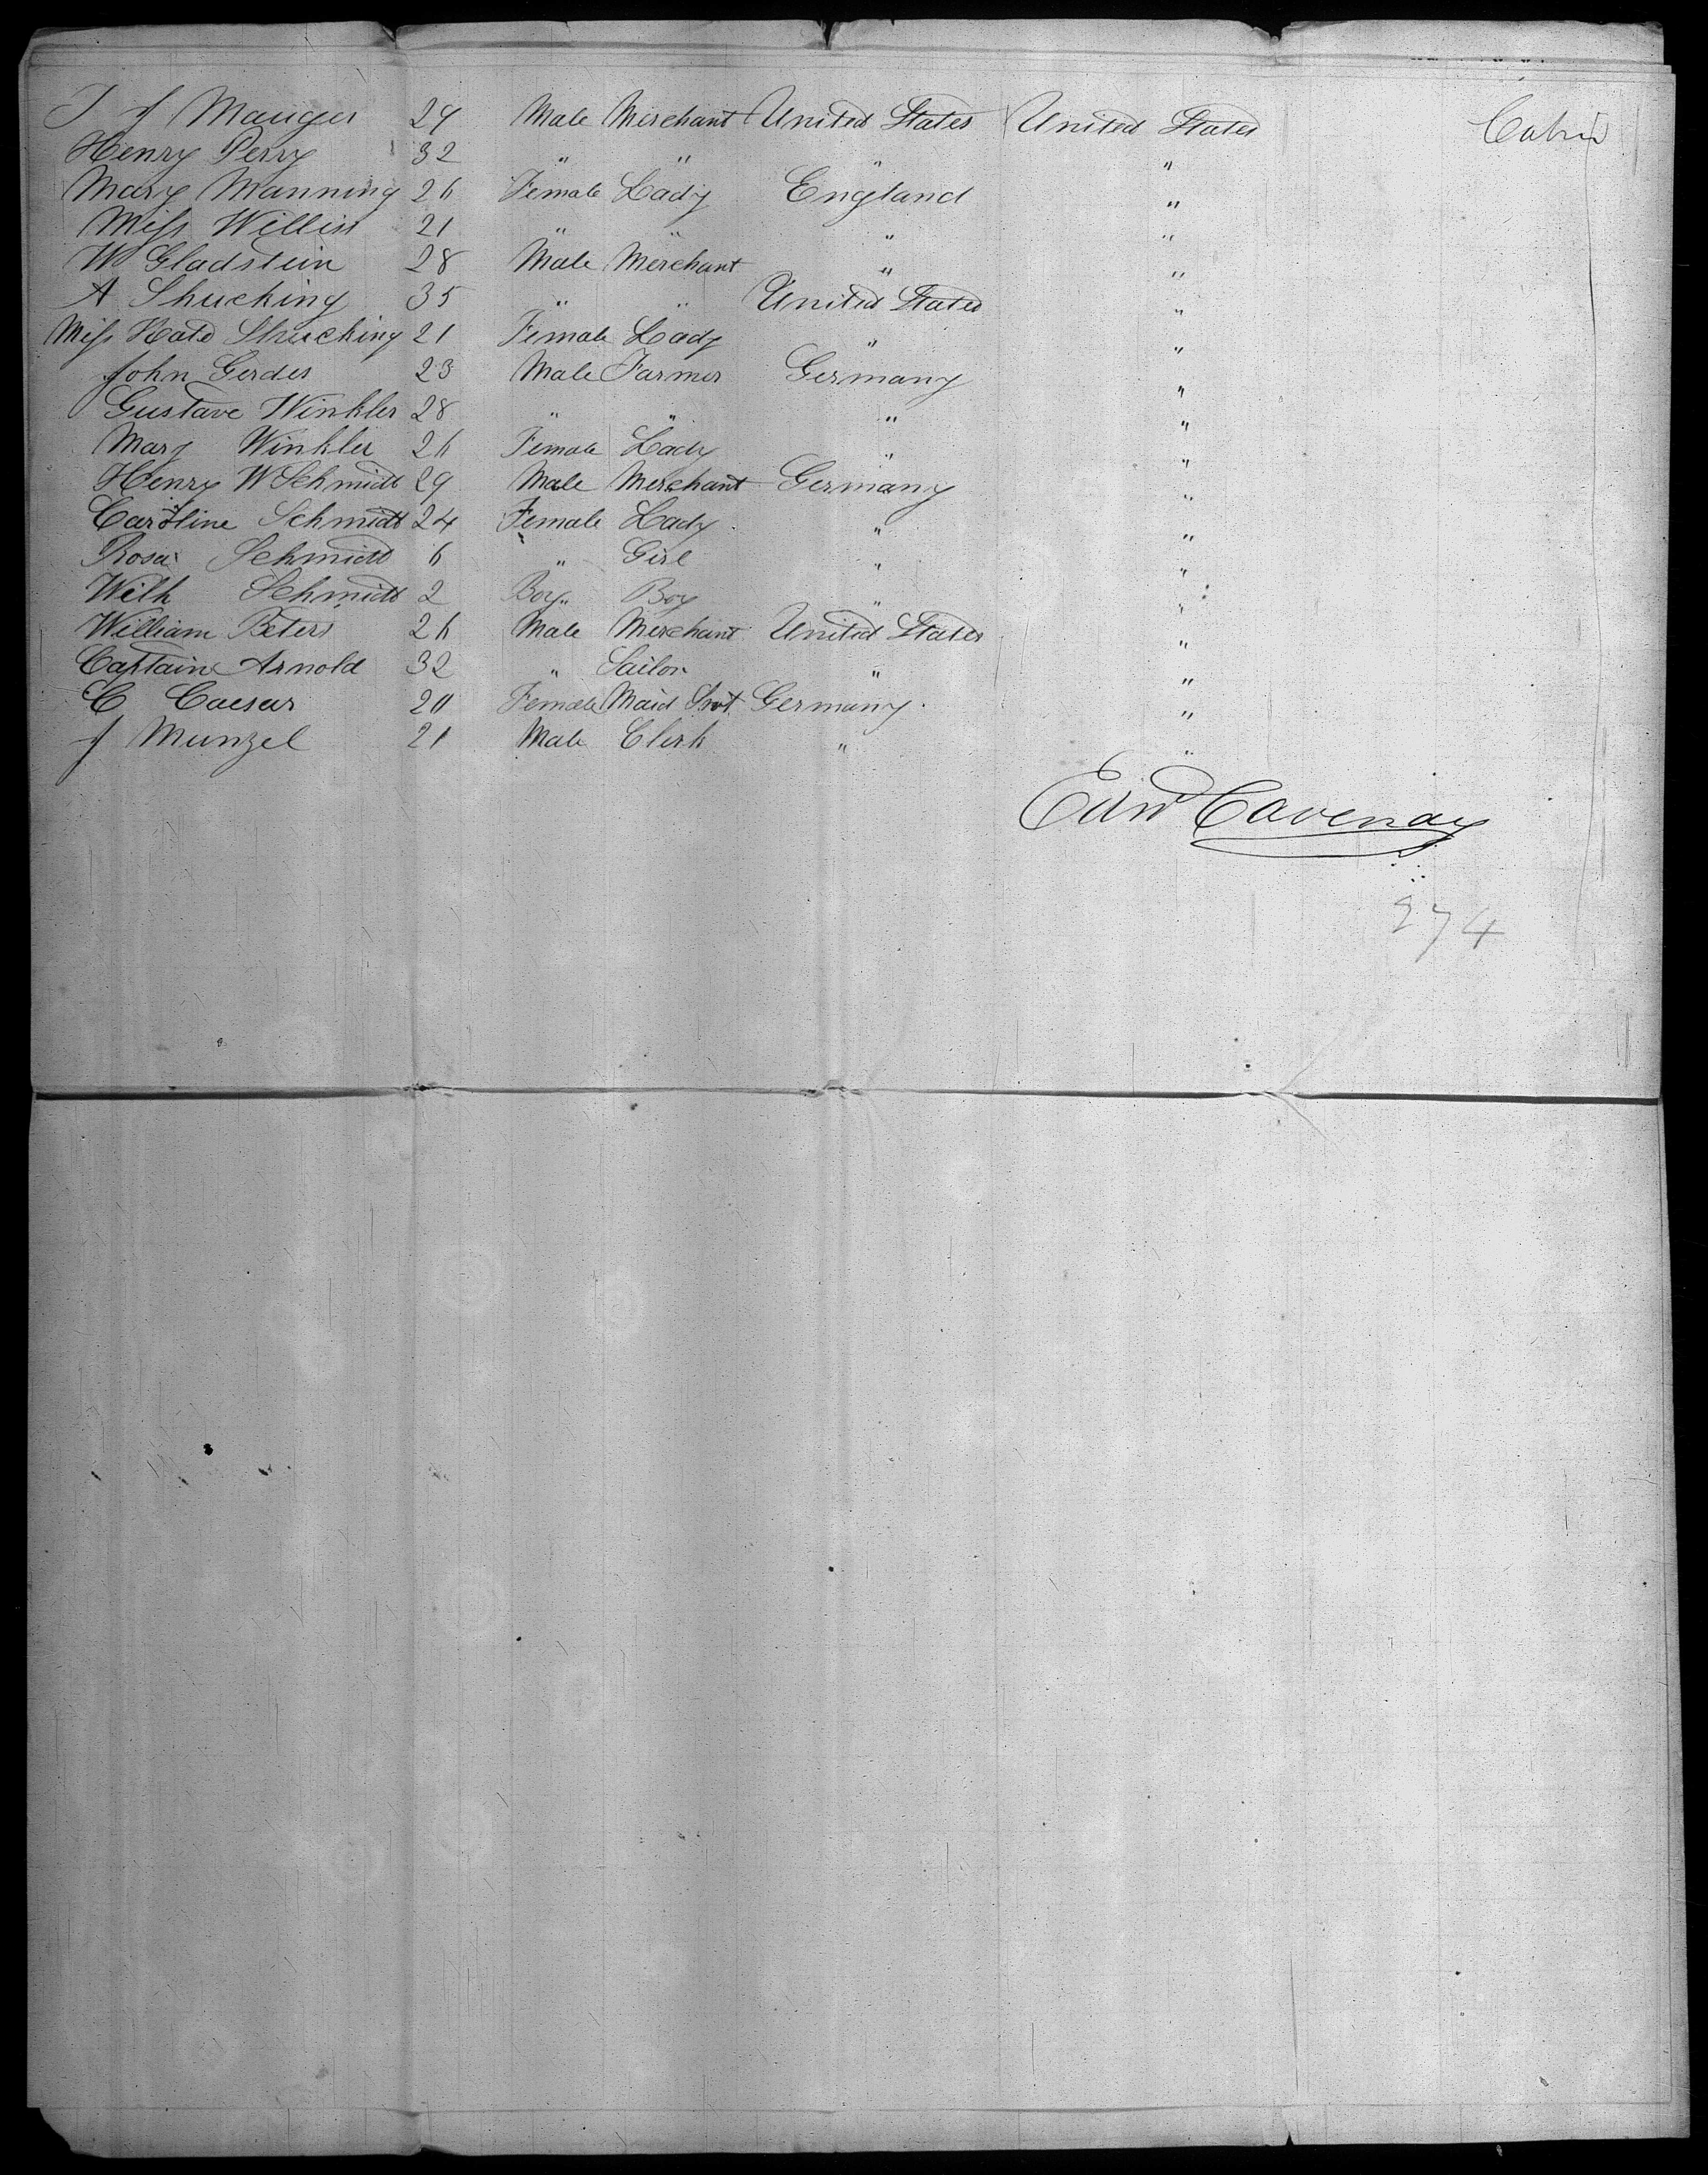 J J Mauger 29 Male Merchant United States United States Cabin
Henry Perry 32 " " " "
Mary Manning 26 Female Lady England "
Miss Williss 21 " " " "
W Gladstein 28 Male Merchant " "
A Shucking 35 " " United States "
Miss Kate Shucking 21 Female Lady " "
John Gerdes 23 Male Farmer Germany "
Gustave Winkler 28 " " " "
Mary Winkler 26 Female Lady " "
Henry W Schmidt 29 Male Merchant Germany "
Caroline Schmidt 24 Female Lady " "
Rosa Schmidt 6 " Girl " "
Wilh Schmidt 2 Boy Boy " "
William Peters 26 Male Merchant United States "
Captain Arnold 32 " Sailor " "
C Caesar 20 Female Maid Svt Germany "
J Munzel 21 Male Clerk " "
Edwd Cavendy
274